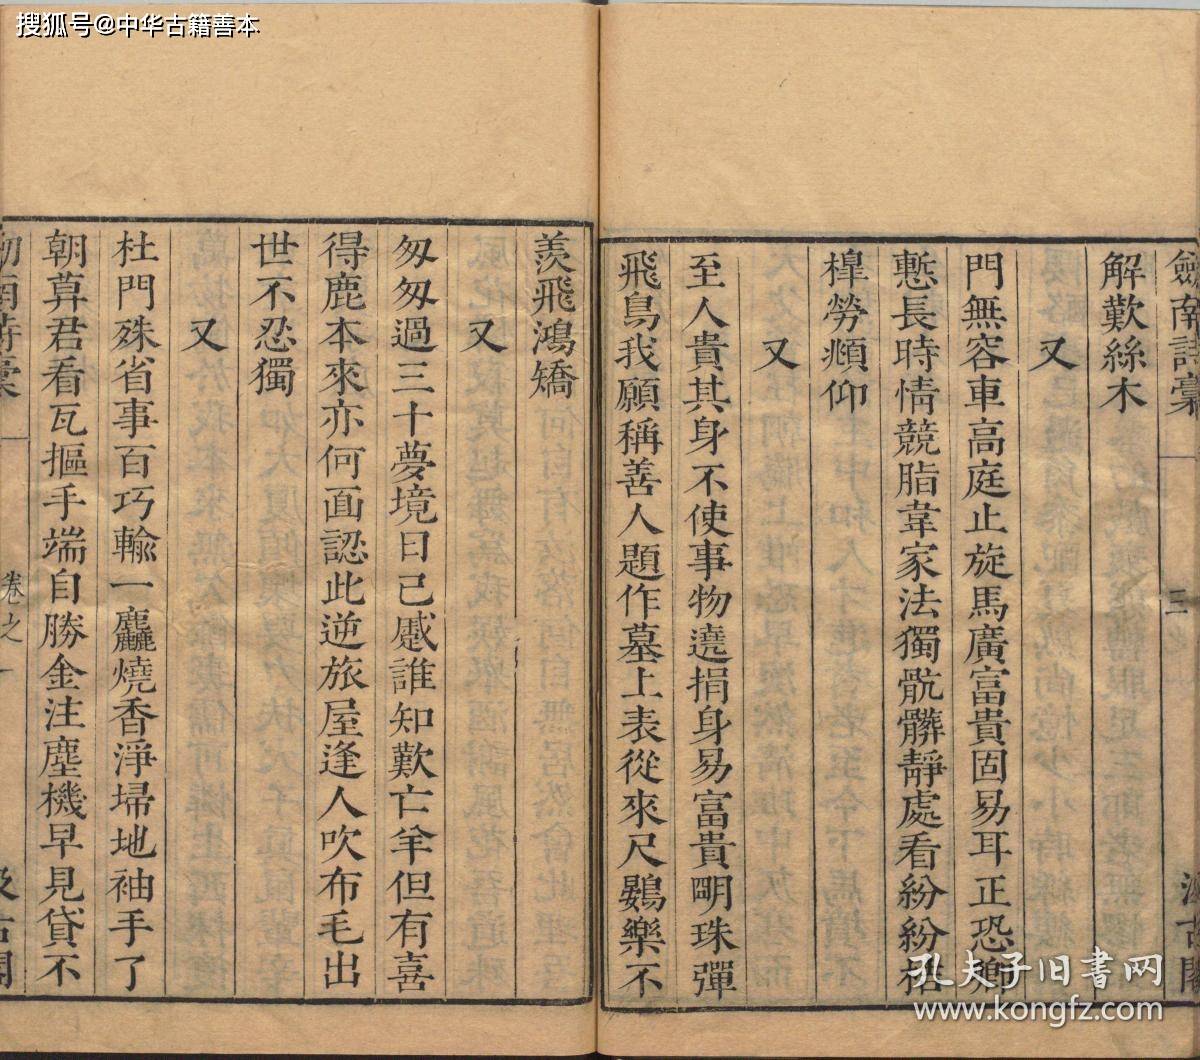 搜狐号@中华古籍善本
劍南詩稾
三
汲古閣
解歎絲木
又
門無容車高庭止旋馬廣富貴固易耳正恐卿
慙長時情競脂韋家法獨骯髒靜處看紛紛桔
橰勞頫仰
又
至人貴其身不使事物遶捐身易富貴明珠彈
飛鳥我願稱善人題作墓上表從來尺鷃樂不
羨飛鴻矯
又
匆匆過三十夢境日已慼誰知歎亡羊但有喜
得鹿本來亦何面認此逆旅屋逢人吹布毛出
世不忍獨
又
杜門殊省事百巧輸一麤燒香淨埽地袖手了
朝算君看瓦摳手端自勝金注塵機早見貸不
劍南詩稾
卷之一
汲古閣
孔夫子旧書网
www.kongfz.com